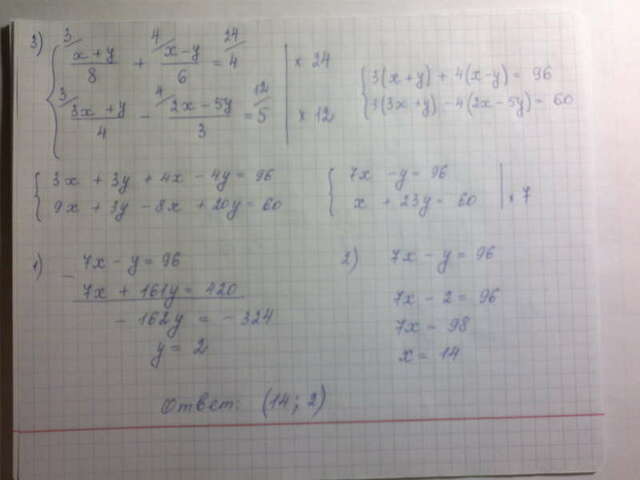 3) { 3/ (x + y)/8 + 4/ (x - y)/6 = 24/ 4 | × 24
3/ (3x + y)/4 - 4/ (2x - 5y)/3 = 12/ 5 | × 12
{ 3(x+y) + 4(x-y) = 96
3(3x+y) - 4(2x-5y) = 60
{ 3x + 3y + 4x - 4y = 96
9x + 3y - 8x + 20y = 60
{ 7x - y = 96
x + 23y = 60 | × 7
1) 7x - y = 96
- 7x + 161y = 420
- 162y = - 324
y = 2
2) 7x - y = 96
7x - 2 = 96
7x = 98
x = 14
Ответ: (14; 2)